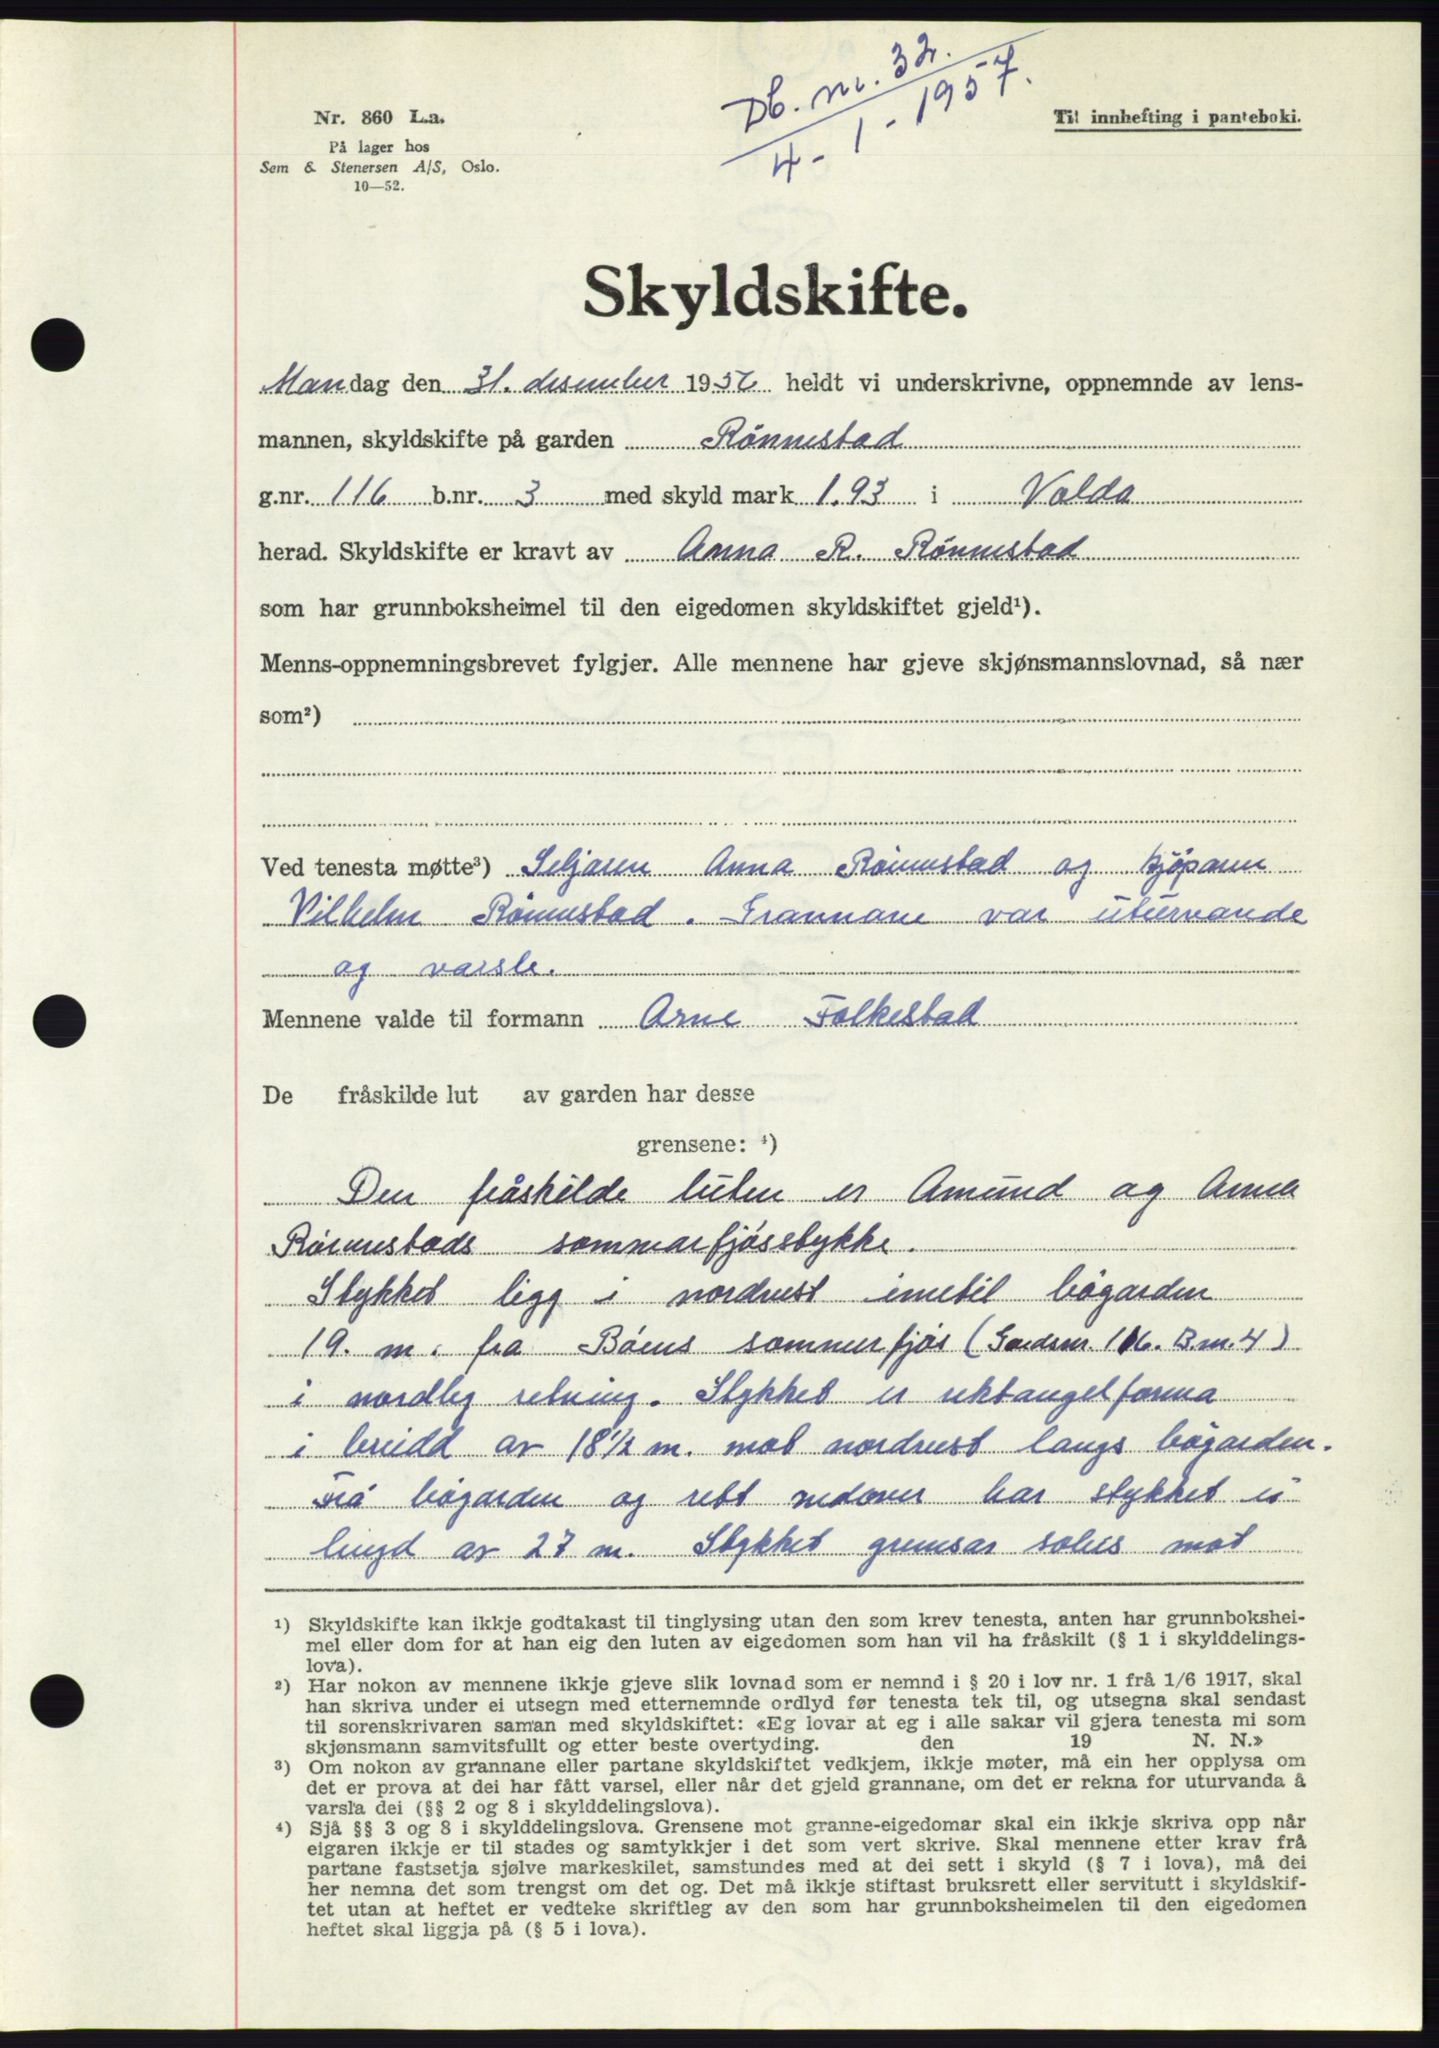 Db. nr. 32.
4 - 1 - 1957.
Nr. 860 L.a.
På lager hos
Sem & Stenersen A/S, Oslo.
10—52.
Til innhefting i panteboki.
Skyldskifte.
Mandag den 31. desember 1956 heldt vi underskrivne, oppnemnde av lens-
mannen, skyldskifte på garden Rönnestad
g.nr. 116 b.nr. 3 med skyld mark 1.93 i Volda
herad. Skyldskifte er kravt av Anna R. Rönnestad
som har grunnboksheimel til den eigedomen skyldskiftet gjeld¹).
Menns-oppnemningsbrevet fylgjer. Alle mennene har gjeve skjønsmannslovnad, så nær
som²)
Ved tenesta møtte³) Seljaren Anna Rönnestad og kjöparen
Vilhelm Rönnestad. Grannane var uturvande
og varsle.
Mennene valde til formann Arne Folkestad
De fråskilde lut av garden har desse
grensene: ⁴)
Den fråskilde luten er Amund og Anna
Rönnestads sommarfjösstykke.
Stykket ligg i nordvest inetil bögarden
19. m. fra Böens sommerfjös (Gardsnr. 116. B.nr. 4)
i nordleg retning. Stykket er rektangelforma
i breidd av 18½ m. mot nordvest langs bögarden.
Frå bögarden og rett nedover har stykket ei
lengd av 27 m. Stykket grensar soleis mot
¹) Skyldskifte kan ikkje godtakast til tinglysing utan den som krev tenesta, anten har grunnbokshei-
mel eller dom for at han eig den luten av eigedomen som han vil ha fråskilt (§ 1 i skylddelings-
lova).
²) Har nokon av mennene ikkje gjeve slik lovnad som er nemnd i § 20 i lov nr. 1 frå 1/6 1917, skal
han skriva under ei utsegn med etternemnde ordlyd før tenesta tek til, og utsegna skal sendast
til sorenskrivaren saman med skyldskiftet: «Eg lovar at eg i alle sakar vil gjera tenesta mi som
skjønsmann samvitsfullt og etter beste overtyding. den 19 N. N.»
³) Om nokon av grannane eller partane skyldskiftet vedkjem, ikkje møter, må ein her opplysa om
det er prova at dei har fått varsel, eller når det gjeld grannane, om det er rekna for uturvanda å
varsla dei (§§ 2 og 8 i skylddelingslova).
⁴) Sjå §§ 3 og 8 i skylddelingslova. Grensene mot granne-eigedomar skal ein ikkje skriva opp når
eigaren ikkje er til stades og samtykkjer i det som vert skrive. Skal mennene etter krav frå
partane fastsetja sjølve markeskilet, samstundes med at dei sett i skyld (§ 7 i lova), må dei
her nemna det som trengst om det og. Det må ikkje stiftast bruksrett eller servitutt i skyldskif-
tet utan at heftet er vedteke skriftleg av den som har grunnboksheimelen til den eigedomen
heftet skal liggja på (§ 5 i lova).